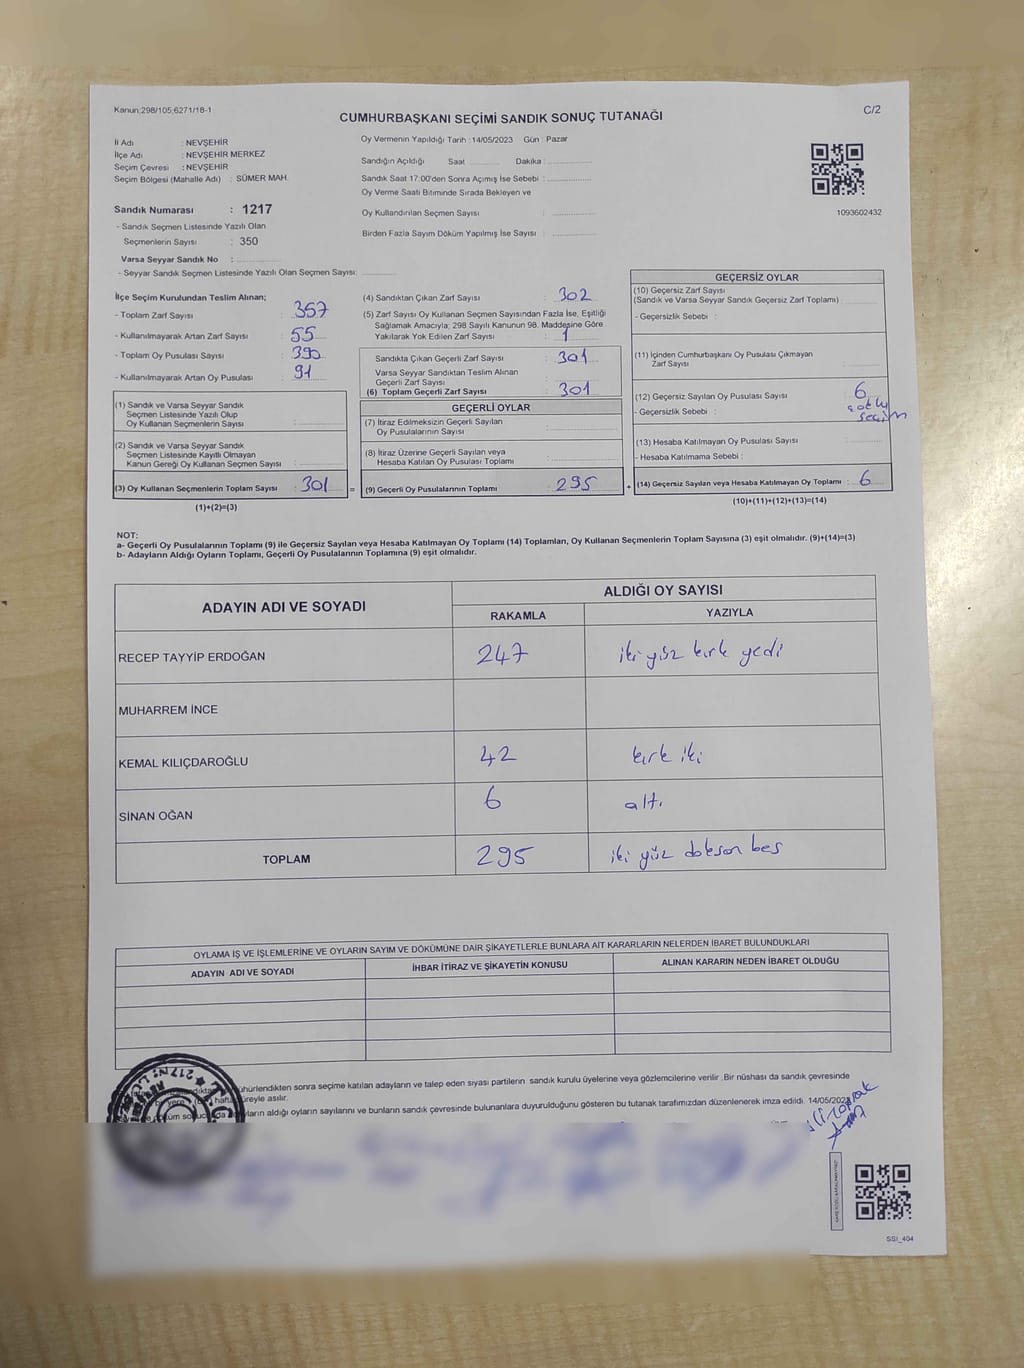 Kanun;298/105;6271/18-1
CUMHURBAŞKANI SEÇİMİ SANDIK SONUÇ TUTANAĞI
C/2
İl Adı : NEVŞEHİR
İlçe Adı : NEVŞEHİR MERKEZ
Seçim Çevresi : NEVŞEHİR
Seçim Bölgesi (Mahalle Adı) : SÜMER MAH.
Sandık Numarası : 1217
- Sandık Seçmen Listesinde Yazılı Olan
Seçmenlerin Sayısı : 350
Varsa Seyyar Sandık No :
- Seyyar Sandık Seçmen Listesinde Yazılı Olan Seçmen Sayısı:
Oy Vermenin Yapıldığı Tarih :14/05/2023 Gün : Pazar
Sandığın Açıldığı Saat Dakika :
Sandık Saat 17:00'den Sonra Açımış İse Sebebi :
Oy Verme Saati Bitiminde Sırada Bekleyen ve
Oy Kullandırılan Seçmen Sayısı :
Birden Fazla Sayım Döküm Yapılmış İse Sayısı :
1093602432
İlçe Seçim Kurulundan Teslim Alınan;
- Toplam Zarf Sayısı : 357
- Kullanılmayarak Artan Zarf Sayısı : 55
- Toplam Oy Pusulası Sayısı : 390
- Kullanılmayarak Artan Oy Pusulası : 91
(1) Sandık ve Varsa Seyyar Sandık
Seçmen Listesinde Yazılı Olup
Oy Kullanan Seçmenlerin Sayısı :
(2) Sandık ve Varsa Seyyar Sandık
Seçmen Listesinde Kayıtlı Olmayan
Kanun Gereği Oy Kullanan Seçmen Sayısı :
(3) Oy Kullanan Seçmenlerin Toplam Sayısı : 301 =
(1)+(2)=(3)
(4) Sandıktan Çıkan Zarf Sayısı : 302
(5) Zarf Sayısı Oy Kullanan Seçmen Sayısından Fazla İse, Eşitliği
Sağlamak Amacıyla; 298 Sayılı Kanunun 98. Maddesine Göre
Yakılarak Yok Edilen Zarf Sayısı : 1
Sandıkta Çıkan Geçerli Zarf Sayısı : 301
Varsa Seyyar Sandıktan Teslim Alınan
Geçerli Zarf Sayısı :
(6) Toplam Geçerli Zarf Sayısı : 301
GEÇERLİ OYLAR
(7) İtiraz Edilmeksizin Geçerli Sayılan
Oy Pusulalarının Sayısı :
(8) İtiraz Üzerine Geçerli Sayılan veya
Hesaba Katılan Oy Pusulası Toplamı :
(9) Geçerli Oy Pusulalarının Toplamı : 295 +
GEÇERSİZ OYLAR
(10) Geçersiz Zarf Sayısı
(Sandık ve Varsa Seyyar Sandık Geçersiz Zarf Toplamı) :
- Geçersizlik Sebebi :
(11) İçinden Cumhurbaşkanı Oy Pusulası Çıkmayan
Zarf Sayısı :
(12) Geçersiz Sayılan Oy Pusulası Sayısı : 6
- Geçersizlik Sebebi : çoklu
seçim
(13) Hesaba Katılmayan Oy Pusulası Sayısı :
- Hesaba Katılmama Sebebi :
(14) Geçersiz Sayılan veya Hesaba Katılmayan Oy Toplamı : 6
(10)+(11)+(12)+(13)=(14)
NOT:
a- Geçerli Oy Pusulalarının Toplamı (9) ile Geçersiz Sayılan veya Hesaba Katılmayan Oy Toplamı (14) Toplamları, Oy Kullanan Seçmenlerin Toplam Sayısına (3) eşit olmalıdır. (9)+(14)=(3)
b- Adayların Aldığı Oyların Toplamı, Geçerli Oy Pusulalarının Toplamına (9) eşit olmalıdır.
ADAYIN ADI VE SOYADI
ALDIĞI OY SAYISI
RAKAMLA YAZIYLA
RECEP TAYYİP ERDOĞAN 247 iki yüz kırk yedi
MUHARREM İNCE
KEMAL KILIÇDAROĞLU 42 kırk iki
SİNAN OĞAN 6 altı
TOPLAM 295 iki yüz doksan beş
OYLAMA İŞ VE İŞLEMLERİNE VE OYLARIN SAYIM VE DÖKÜMÜNE DAİR ŞİKAYETLERLE BUNLARA AİT KARARLARIN NELERDEN İBARET BULUNDUKLARI
ADAYIN ADI VE SOYADI İHBAR İTİRAZ VE ŞİKAYETİN KONUSU ALINAN KARARIN NEDEN İBARET OLDUĞU
mühürlendikten sonra seçime katılan adayların ve talep eden siyasi partilerin sandık kurulu üyelerine veya gözlemcilerine verilir .Bir nüshası da sandık çevresinde
hafta süreyle asılır.
aldığı oyların sayılarını ve bunların sandık çevresinde bulunanlara duyurulduğunu gösteren bu tutanak tarafımızdan düzenlenerek imza edildi. 14/05/2023
SSI_404